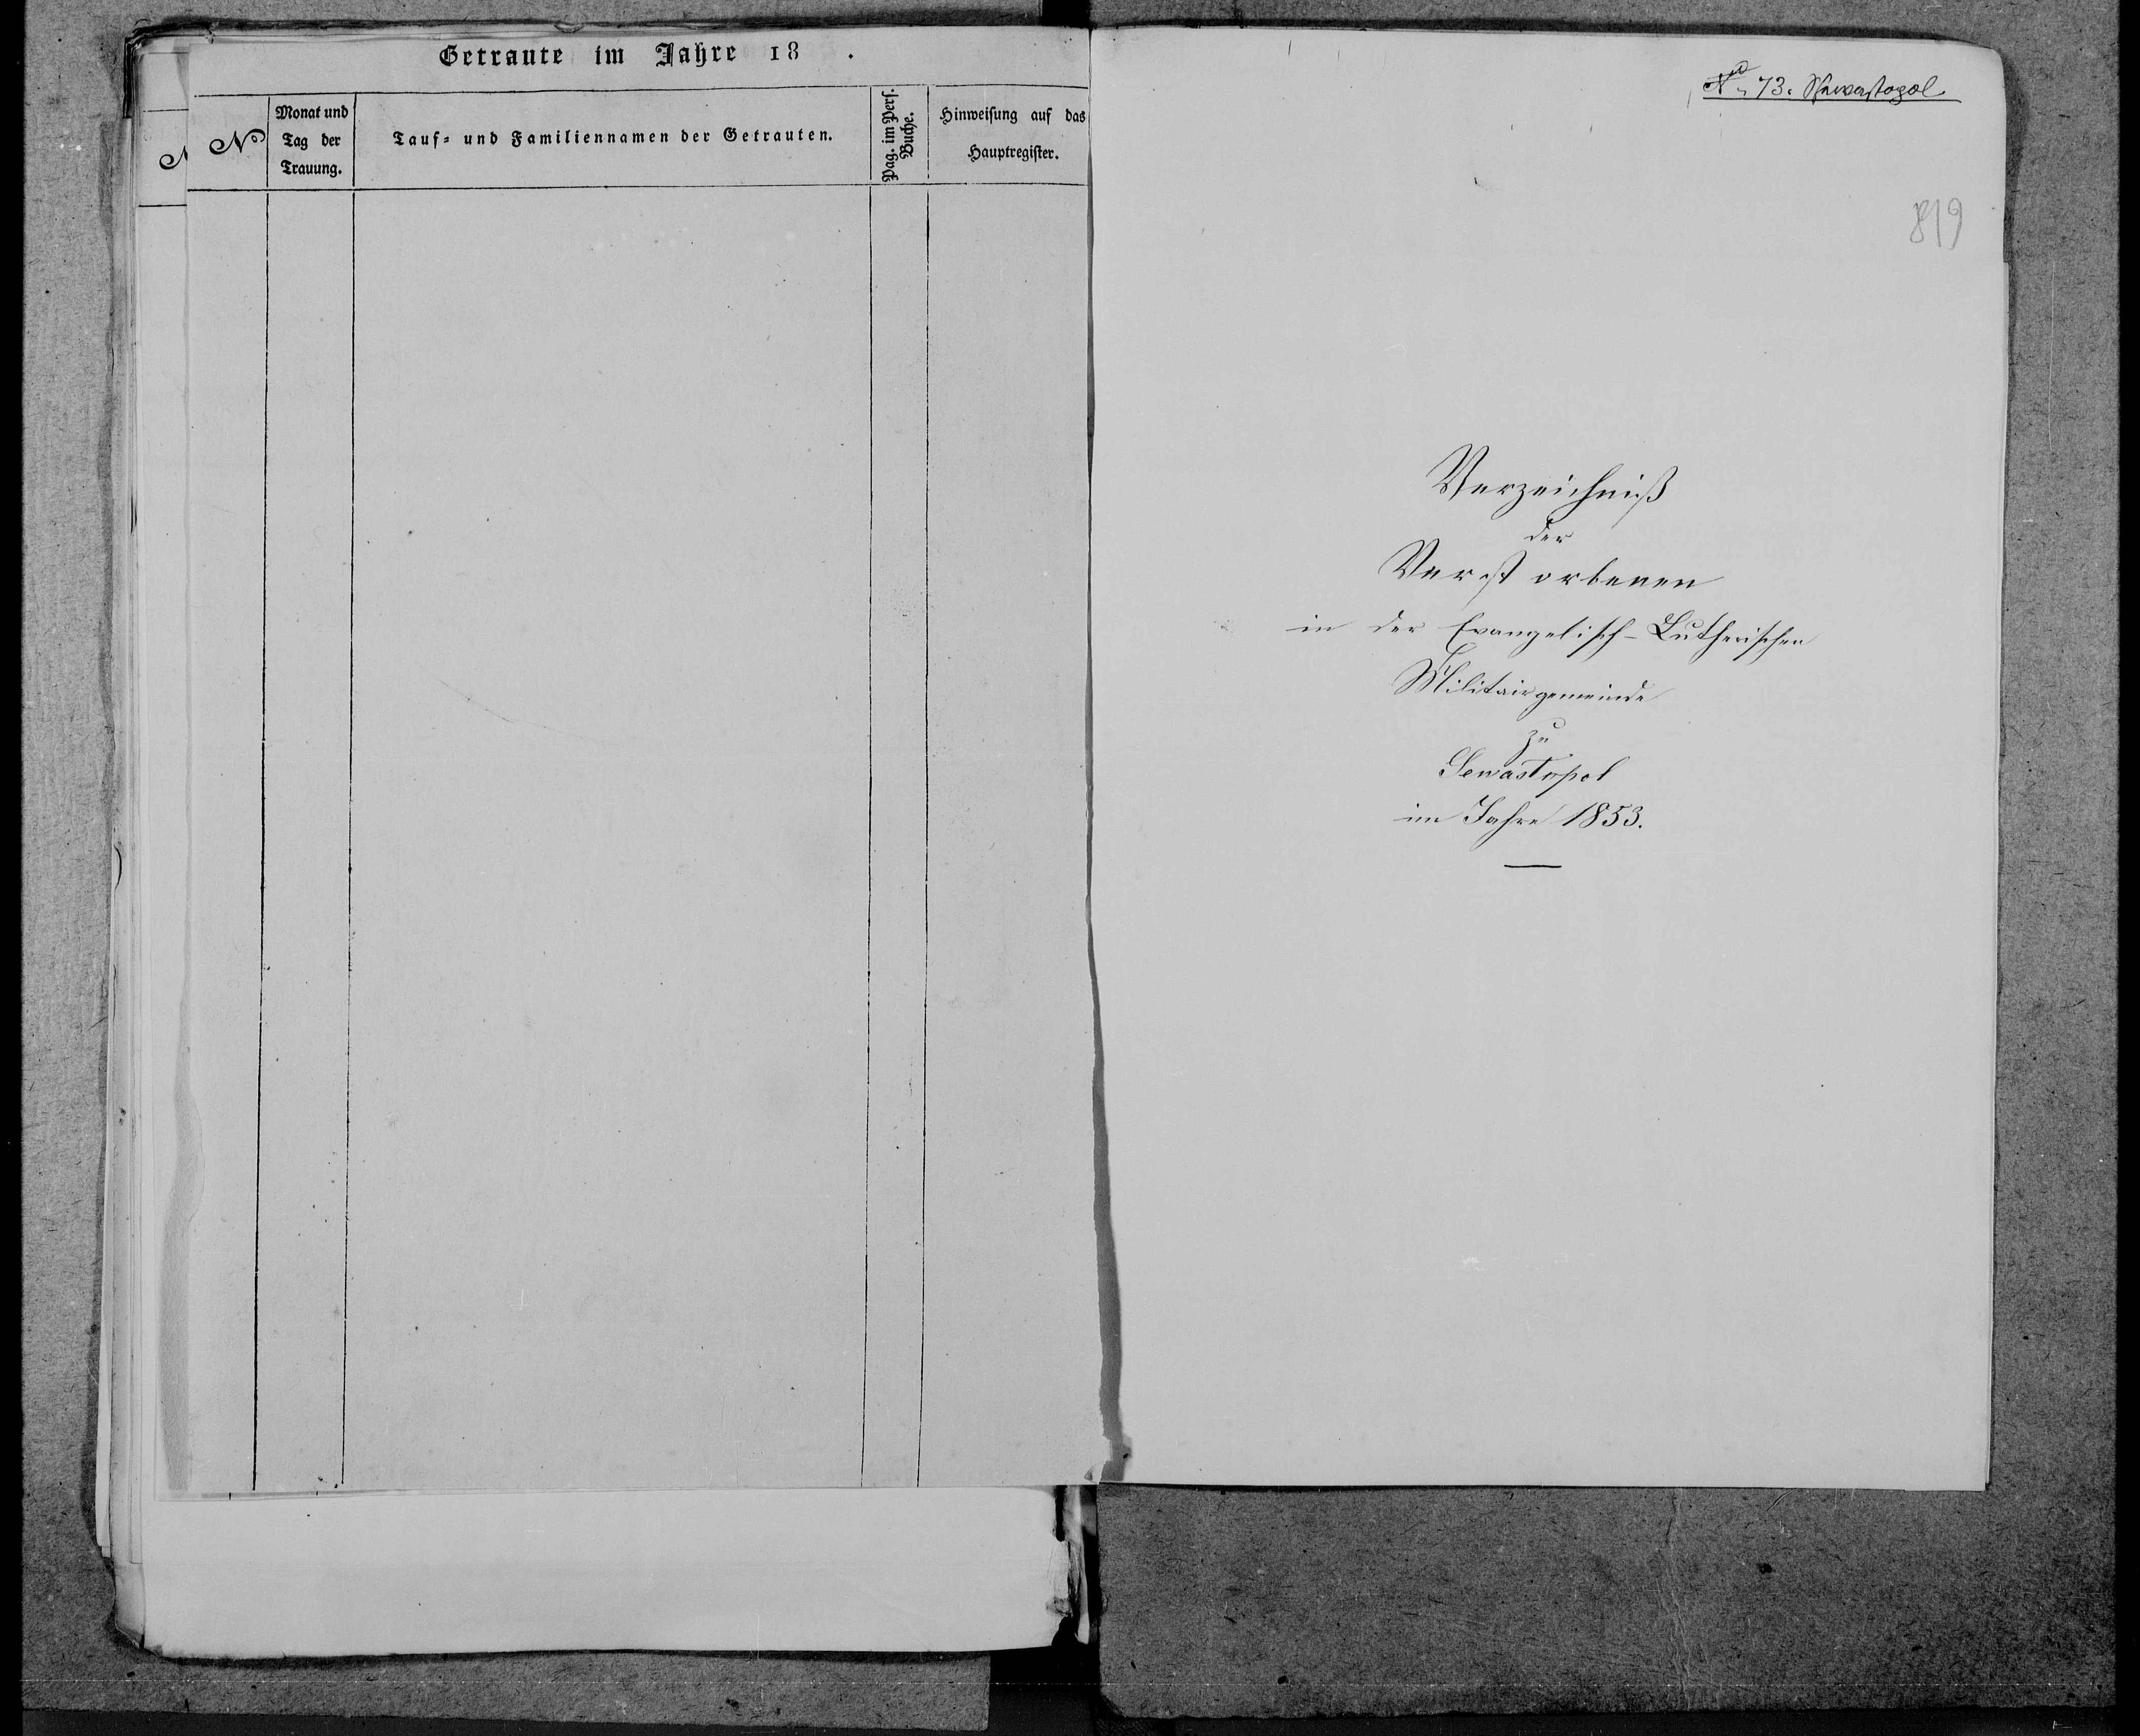 Getraute im Jahre 18 .
N
No
Monat und
Tag der
Trauung.
Tauf- und Familiennamen der Getrauten.
Pag. im Pers.
Buche.
Hinweisung auf das
Hauptregister.
No 73. Sewastopol
819
Verzeichniß
der
Verstorbenen
in der Evangelisch-Lutherischen
Militairgemeinde
zu
Sewastopol
im Jahre 1853.